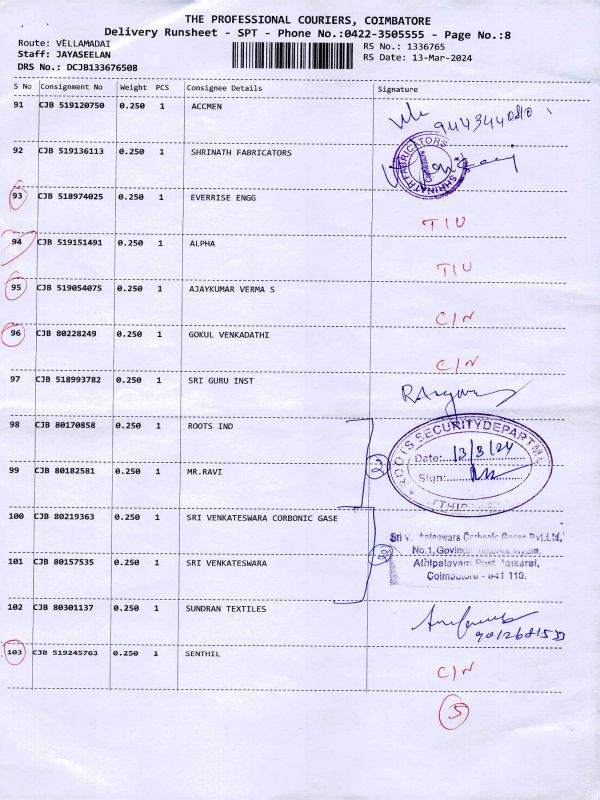 THE PROFESSIONAL COURIERS, COIMBATORE
Delivery Runsheet - SPT - Phone No.:0422-3505555 - Page No.:8
Route: VELLAMADAI
RS No.: 1336765
Staff: JAYASEELAN
RS Date: 13-Mar-2024
DRS No.: DCJB133676508
S No Consignment No Weight PCS Consignee Details Signature
91 CJB 519120750 0.250 1 ACCMEN
9443440810
92 CJB 519136113 0.250 1 SHRINATH FABRICATORS
SHRINATH FABRICATORS
93 CJB 518974025 0.250 1 EVERRISE ENGG
TIU
94 CJB 519151491 0.250 1 ALPHA
TIU
95 CJB 519054075 0.250 1 AJAYKUMAR VERMA S
C/N
96 CJB 80228249 0.250 1 GOKUL VENKADATHI
C/N
97 CJB 518993782 0.250 1 SRI GURU INST
98 CJB 80170858 0.250 1 ROOTS IND
ROOTS SECURITY DEPARTME
Date: 13/3/24
Sign:
99 CJB 80182581 0.250 1 MR.RAVI
100 CJB 80219363 0.250 1 SRI VENKATESWARA CORBONIC GASE
Sri V kateswara Carbonic Gases Pvt.Ltd,
No.1, Govind
101 CJB 80157535 0.250 1 SRI VENKATESWARA
Athipalayam Post
Coimbatore - 641 110.
102 CJB 80301137 0.250 1 SUNDRAN TEXTILES
103 CJB 519245763 0.250 1 SENTHIL
C/N
5